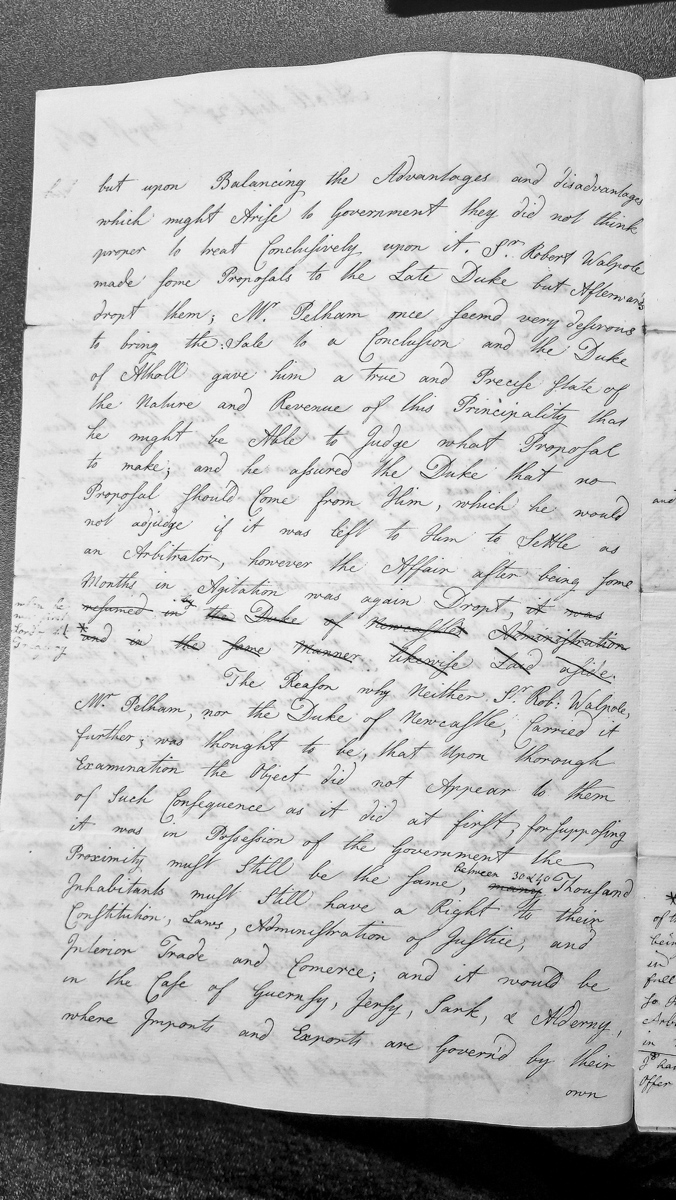 but upon Balancing the Advantages and disadvantages
which might Arise to Government they did not think
proper to treat Conclusively upon it. Sr. Robert Walpole
made some Proposals to the Late Duke but Afterwards
dropt them; Mr. Pelham once seemd very desirous
to bring the Sale to a Conclusion and the Duke
of Atholl gave him a true and Precise State of
the Nature and Revenue of this Principality that
he might be Able to Judge what Proposal
to make; and he assured the Duke that no
Proposal should Come from Him, which he would
not adjudge if it was left to Him to Settle as
an Arbitrator, however the Affair after being some
Months in Agitation was again Dropt, it was
resumed in the Duke of Newcastles Administration
* and in the same Manner likewise Laid aside.
The Reason why Neither Sr. Rob: Walpole,
Mr. Pelham, nor the Duke of Newcastle, Carried it
further; was thought to be, that Upon thorough
Examination the Object did not Appear to them
of Such Consequence as it did at first; for supposing
it was in Possession of the Government the
Proximity must Still be the same, between 30 & 40 many Thousand
Inhabitants must Still have a Right to their
Constitution, Laws, Administration of Justice, and
Interior Trade and Comerce; and it would be
in the Case of Guernsy, Jersy, Sark, & Alderny,
where Imports and Exports are Govern'd by their
own
when he
was first
Lord
Treasury
and
*
of t
bein
in
full
Arb
in
I ha
Offer